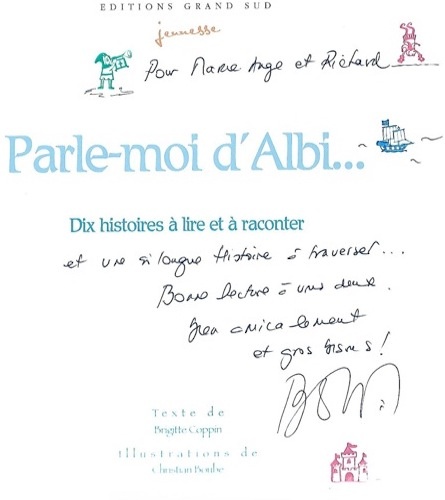 EDITIONS GRAND SUD
jeunesse
Pour Marie Ange et Richard
Parle-moi d'Albi...
Dix histoires à lire et à raconter
et une si longue Histoire à traverser...
Bonne lecture à vous deux.
Bien amicalement
et gros bisous !
Texte de
Brigitte Coppin
Illustrations de
Christian Boube